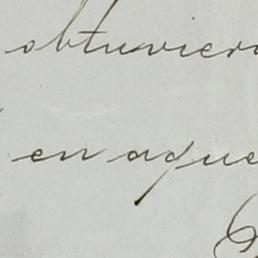 obtuvier
en aque